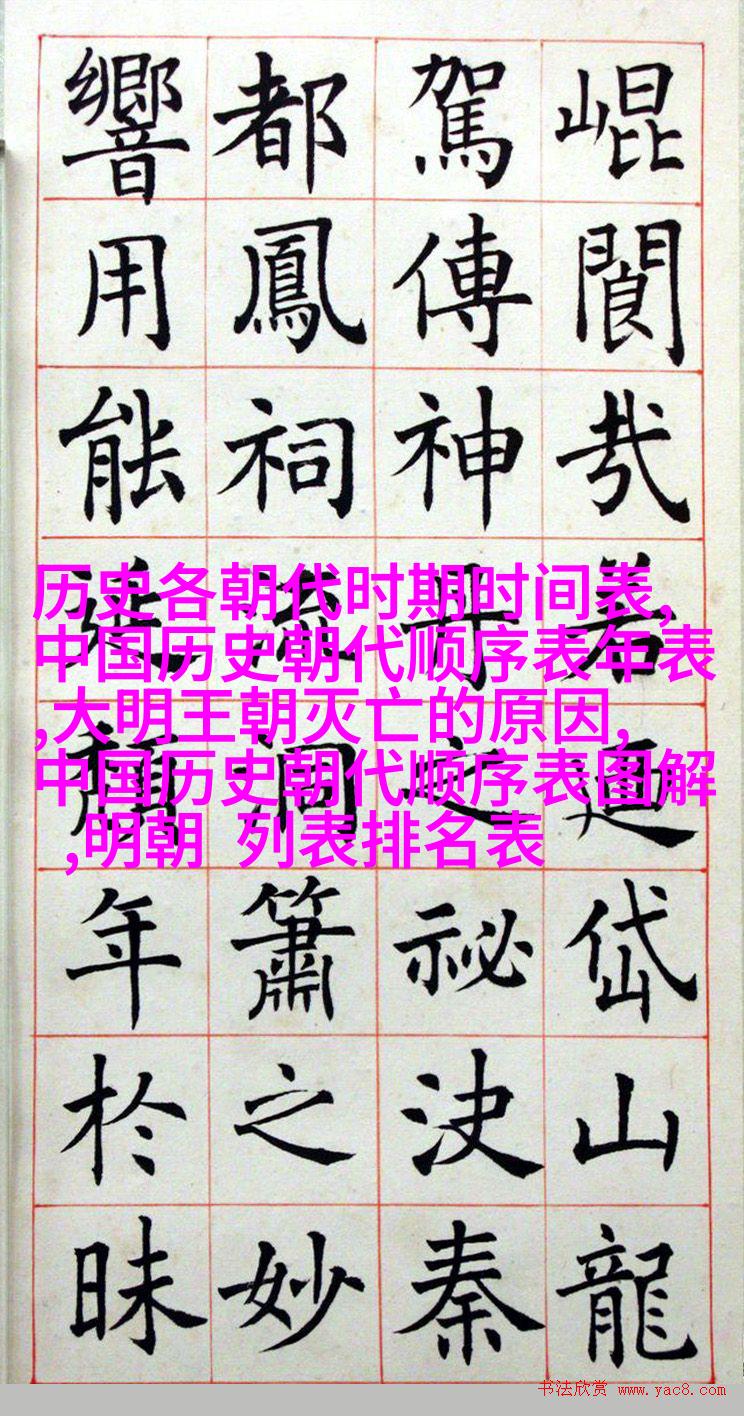 崐閬哉若迺岱山龍
駕傳神丹之祕決秦
都鳳祠流洞簫之妙
響用能延頹年於昧
历史各朝代时期时间表,
中国历史朝代顺序表年表
,大明王朝灭亡的原因,
中国历史朝代顺序表图解
,明朝 列表排名表
书法欣赏 www.yac8.com